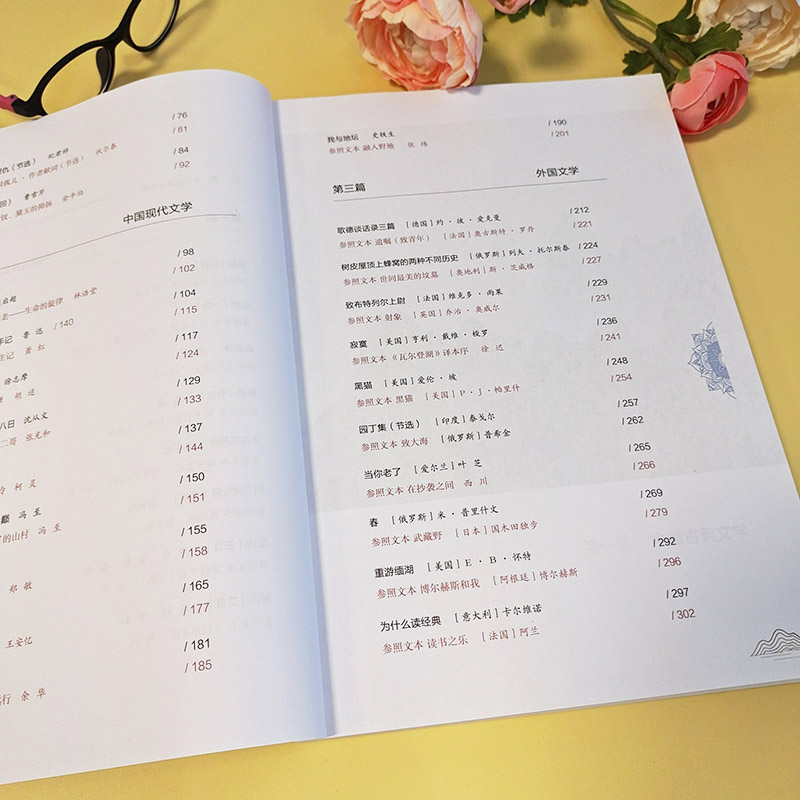 / 76
/ 81
仇（节选） 纪君祥 / 84
孤儿·作者献词（节选） 伏尔泰 / 92
回） 曹雪芹
钗、黛玉的抑扬 俞平伯
中国现代文学
/ 98
/ 102
启超 / 104
老——生命的旋律 林语堂 / 115
年记 鲁迅 / 140
/ 117
生记 萧红 / 124
徐志摩 / 129
胡适 / 133
八日 沈从文 / 137
二哥 张充和 / 144
柯灵 / 150
/ 151
冯至 / 155
了的山村 冯至 / 158
郑敏 / 165
/ 177
王安忆 / 181
/ 185
远行 余华
我与地坛 史铁生 / 190
参照文本 融入野地 张炜 / 201
第三篇 外国文学
歌德谈话录三篇 ［德国］约·彼·爱克曼 / 212
参照文本 遗嘱（致青年） ［法国］奥古斯特·罗丹 / 221
树皮屋顶上蜂窝的两种不同历史 ［俄罗斯］列夫·托尔斯泰 / 224
参照文本 世间最美的坟墓 ［奥地利］斯·茨威格 / 227
致布特列尔上尉 ［法国］维克多·雨果 / 229
参照文本 射象 ［英国］乔治·奥威尔 / 231
寂寞 ［美国］亨利·戴维·梭罗 / 236
参照文本 《瓦尔登湖》译本序 徐迟 / 241
黑猫 ［美国］爱伦·坡 / 248
参照文本 黑猫 ［美国］P·J·帕里什 / 254
园丁集（节选） ［印度］泰戈尔 / 257
参照文本 致大海 ［俄罗斯］普希金 / 262
当你老了 ［爱尔兰］叶芝 / 265
参照文本 在抄袭之间 西川 / 266
春 ［俄罗斯］米·普里什文 / 269
参照文本 武藏野 ［日本］国木田独步 / 279
重游缅湖 ［美国］E·B·怀特 / 292
参照文本 博尔赫斯和我 ［阿根廷］博尔赫斯 / 296
为什么读经典 ［意大利］卡尔维诺 / 297
参照文本 读书之乐 ［法国］阿兰 / 302